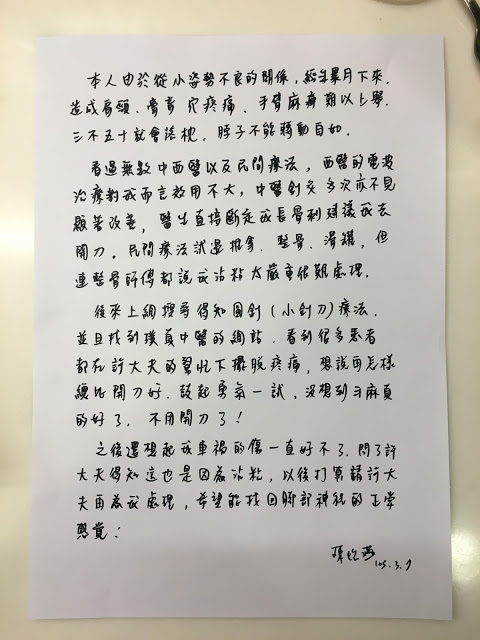 本人由於從小姿勢不良的關係,經年累月下來.
造成肩頸、膏肓穴疼痛、手臂麻痺難以上舉.
三不五十就會落枕.脖子不能轉動自如.
看過無數中西醫以及民間療法,西醫的電波
治療對我而言效用不大,中醫針灸多次亦不見
顯著改善,醫生直接斷定我長骨刺建議我去
開刀。民間療法試過推拿、整骨、滑罐,但
連整骨師傅都說我沾粘太嚴重很難處理.
後來上網搜尋得知圓針(小針刀)療法.
並且找到璞真中醫的網站.看到很多患者
都在許大夫的幫忙下擺脫疼痛,想說再怎樣
總比開刀好.鼓起勇氣一試,沒想到手麻真
的好了.不用開刀了!
之後還想起我車禍的傷一直好不了.問了許
大夫得知這也是因為沾粘,以後打算請許大
夫再為我處理,希望能找回腳部神經的正常
感覺!
105.3.9